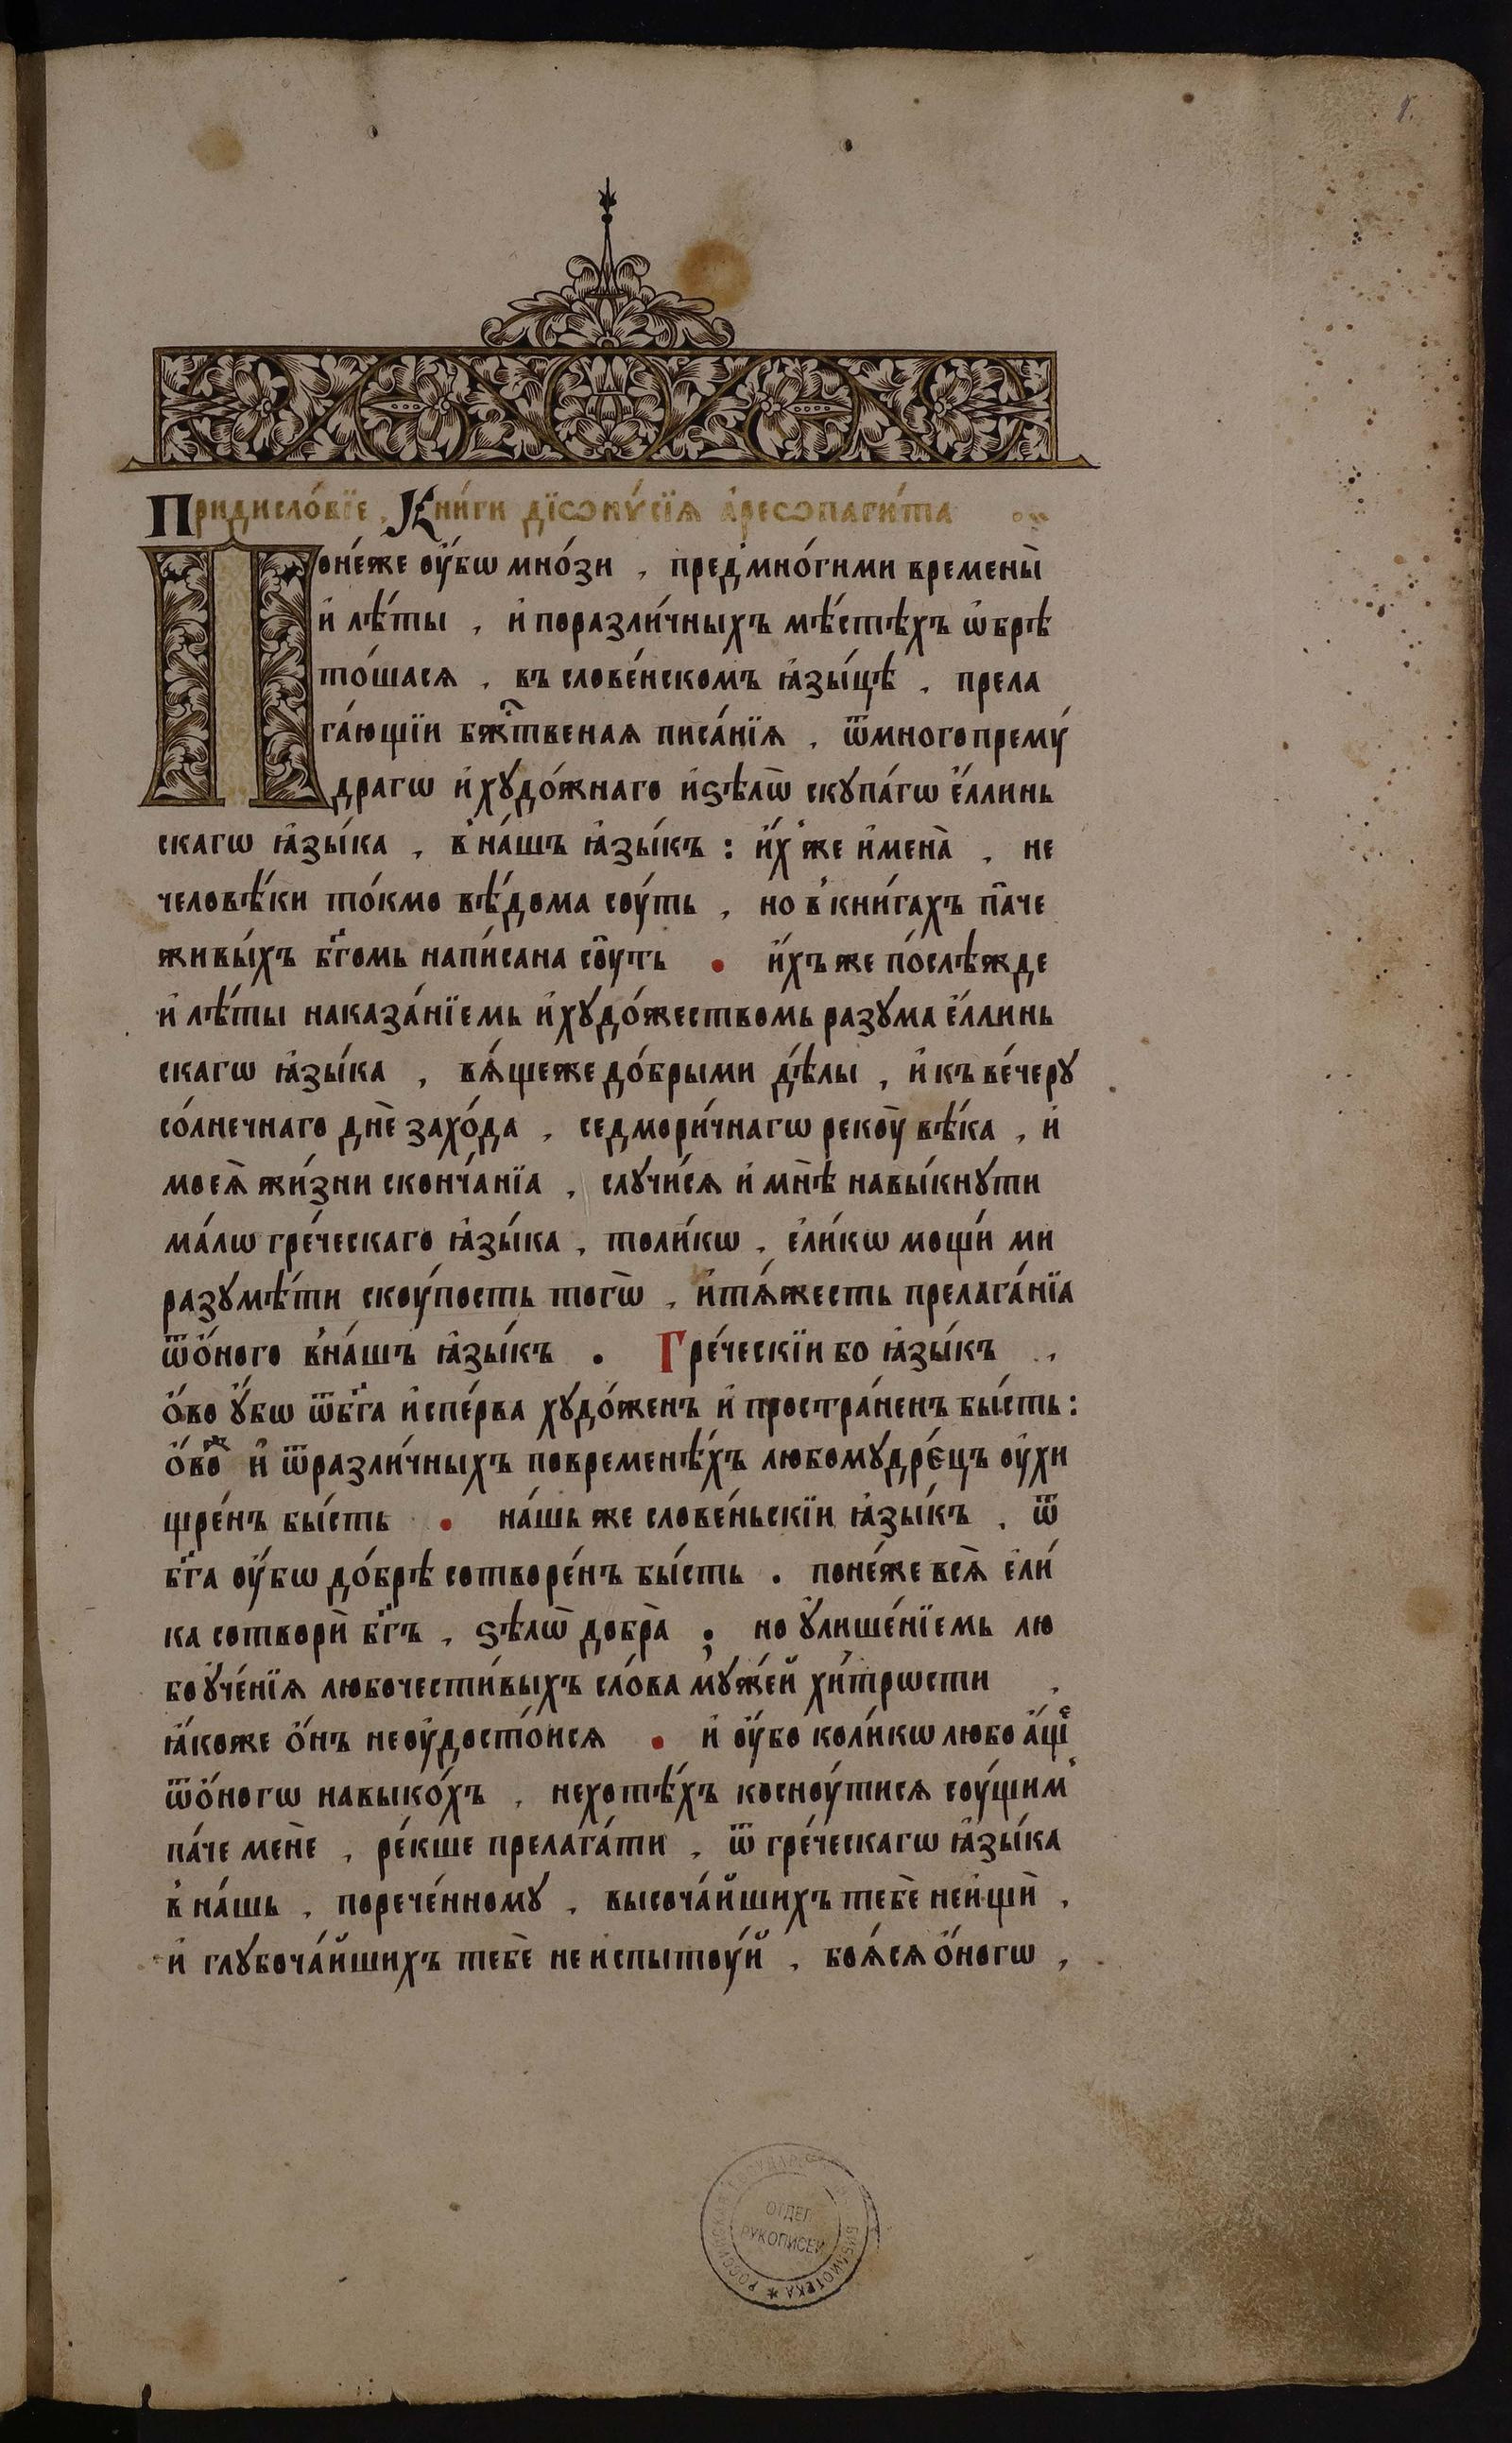 Придисло́вїе . Кни́ги дїѡнѵ́сїꙗ а҆реѡпаги́та
Поне́же ѹ҆́бѡ мно́зи , пред̾мно́гими времены̀
и҆ лѣ́ты , и҆ поразли́чныхъ мѣ́стѣхъ ѡ҆брѣ
то́шасѧ , въ слове́нскомъ ꙗ҆зы́цѣ , прела
га́ющїи бж҇твенаѧ писа́нїѧ , ѿмногопремꙋ́
драгѡ и҆ хꙋдо́жнаго и҆ѕѣлѡ̀ скꙋпа́гѡ є҆́ллинь
скагѡ ꙗ҆зы́ка , в̾ на́шъ ꙗ҆зы́къ : и҆́х̾ же и҆мена̀ , не
человѣ́ки то́кмо вѣ́дома сѹ́ть , но в̾ кни́гахъ па́че
живы́хъ бг҃омь напи́сана сѹ́ть . и҆́хъ же по́слѣжде
и҆ лѣ́ты наказа́нїемь и҆ хꙋдо́жествомь разꙋма є҆́ллинь
скагѡ ꙗ҆зы́ка , вѧ́щеже до́брыми дѣ́лы , и҆ къ ве́черꙋ
со́лнечнаго днѐ захо́да , седмори́чнагѡ рекѹ̀ вѣ́ка , и҆
моеѧ̀ жи́зни сконча́нїа , слꙋчи́сѧ и҆ мнѣ̀ навы́кнꙋти
ма́лѡ гре́ческаго ꙗ҆зы́ка , толи́кѡ , є҆ли́кѡ мощи́ ми
разꙋмѣ́ти скѹ́пость тогѡ̀ , и҆тѧ́жесть прелага́нїа
ѿо҆́ного в̾на́шъ ꙗ҆зы́къ . Гре́ческїи бо ꙗ҆зы́къ ,
о҆́во ꙋ҆́бѡ ѿбг҃а и҆спе́рва хꙋдо́женъ и҆ простра́ненъ бы́сть :
о҆́во ж и҆ ѿразли́чныхъ повременѣ́хъ любомꙋдре́цъ ѹ҆хи
щре́нъ бы́сть . на́шь же слове́ньскїи ꙗ҆зы́къ , ѿ
бг҃а ѹ҆́бѡ до́брѣ сотворе́нъ бы́сть . поне́же всѧ̀ є҆ли́
ка сотворѝ бг҃ъ , ѕѣлѡ̀ добра̀ ; но ꙋ҆лише́нїемь лю
боꙋче́нїѧ любочести́выхъ сло́ва мꙋже́й хи́трѡсти ,
ꙗ҆́коже о҆́нъ неѹ҆досто́исѧ . и҆ ѹ҆́бо коли́кѡ любо а҆́ще
ѿо҆́ногѡ навыко́хъ , нехотѣ́хъ коснѹ́тисѧ сѹ́щим̾
па́че менѐ , ре́кше прелага́ти , ѿ гре́ческагѡ ꙗ҆зы́ка
в̾ на́шь , порече́нномꙋ , высоча́йшихъ тебѐ неищѝ ,
и҆ глꙋбоча́йшихъ тебѐ не испытѹ́й , боѧ́сѧ о҆́ногѡ ,
ОТДЕЛ
РУКОПИСЕЙ
БИБЛИОТЕКА * РОССИЙСКАЯ